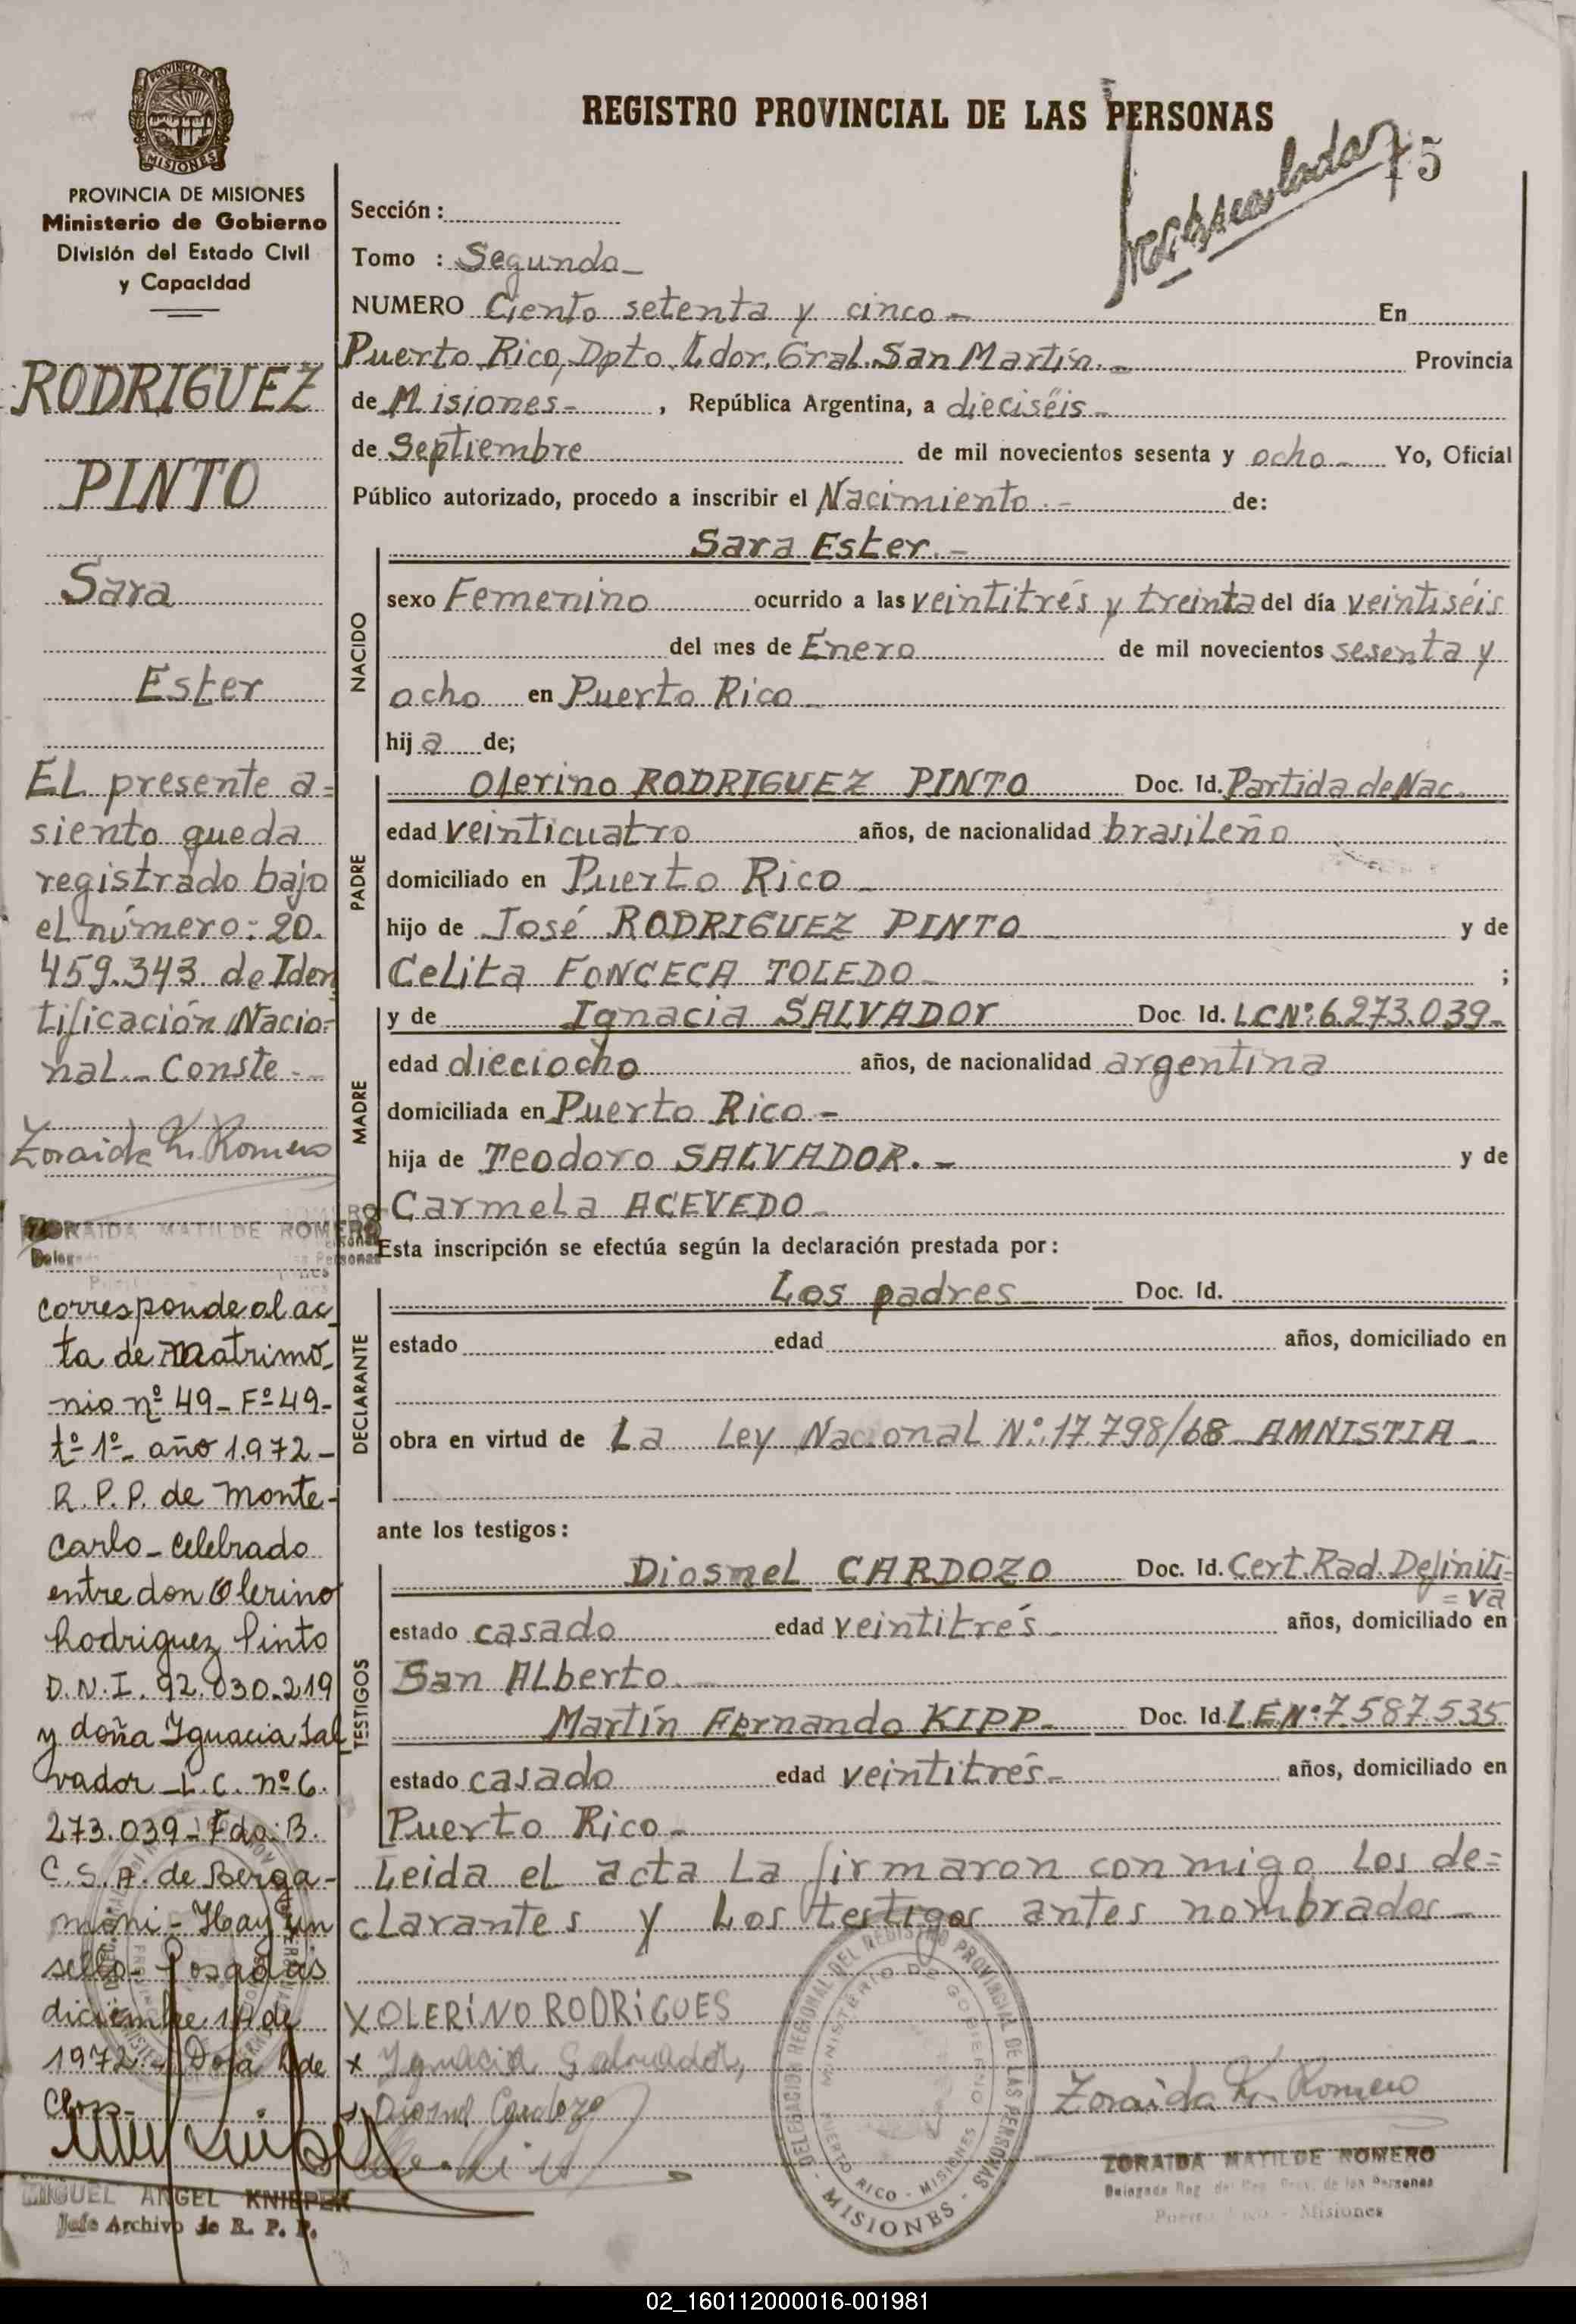 PROVINCIA DE
MISIONES
PROVINCIA DE MISIONES
Ministerio de Gobierno
División del Estado Civil
y Capacidad
RODRIGUEZ
PINTO
Sara
Ester
EL presente a=
siento queda
registrado bajo
el número: 20.
459.343 de Iden
tificación Nacio=
nal.- Conste.-
Zoraida M. Romero
ZORAIDA MATILDE ROMERO
corresponde al ac
ta de matrimo-
nio nº 49- Fº 49-
tº 1º- año 1972-
R. P. P. de Monte-
carlo- Celebrado
entre don Olerino
Rodriguez Pinto
D.N.I. 92.030.219
y doña Ignacia Sal
vador L.C. nº 6.
273.039- Fdo: B.
C. S. A. de Berga-
moni- Hay un
sello- Posadas
diciembre 14 de
1972.- Dora L de
Closs-
MIGUEL ANGEL KNIEPER
Jefe Archivo de R. P. P.
REGISTRO PROVINCIAL DE LAS PERSONAS
75
Sección:
Tomo : Segundo-
NUMERO Ciento setenta y cinco- En
Puerto Rico, Dpto. Ldor. Gral. San Martín.- Provincia
de Misiones- , República Argentina, a dieciséis-
de Septiembre de mil novecientos sesenta y ocho- Yo, Oficial
Público autorizado, procedo a inscribir el Nacimiento.- de:
Sara Ester.-
NACIDO
sexo Femenino ocurrido a las veintitrés y treinta del día veintiséis
del mes de Enero de mil novecientos sesenta y
ocho en Puerto Rico-
hija de;
PADRE
Olerino RODRIGUEZ PINTO Doc. Id. Partida de Nac.
edad veinticuatro años, de nacionalidad brasileño
domiciliado en Puerto Rico-
hijo de José RODRIGUEZ PINTO y de
Celita FONCECA TOLEDO- ;
MADRE
y de Ignacia SALVADOR Doc. Id. LCNº:6.273.039-
edad dieciocho años, de nacionalidad argentina
domiciliada en Puerto Rico-
hija de Teodoro SALVADOR.- y de
Carmela ACEVEDO-
Esta inscripción se efectúa según la declaración prestada por:
DECLARANTE
Los padres Doc. Id.
estado edad años, domiciliado en
obra en virtud de La Ley Nacional Nº:17.798/68 AMNISTIA-
ante los testigos:
TESTIGOS
Diosmel CARDOZO Doc. Id. Cert. Rad. Definiti=
=va
estado casado edad veintitrés- años, domiciliado en
San Alberto.-
Martín Fernando KIPP- Doc. Id. LENº:7.587.535
estado casado edad veintitrés- años, domiciliado en
Puerto Rico-
Leida el acta la firmaron conmigo los de=
clarantes y los testigos antes nombrados-
X OLERINO RODRIGUES
x Ignacia Salvador,
Diosmel Cardozo
DELEGACION REGIONAL DEL REGISTRO PROVINCIAL DE LAS PERSONAS
MINISTERIO DE GOBIERNO
PUERTO RICO - MISIONES
- MISIONES -
Zoraida M. Romero
ZORAIDA MATILDE ROMERO
Delegada Reg. del Reg. Prov. de las Personas
Puerto Rico - Misiones
02_160112000016-001981